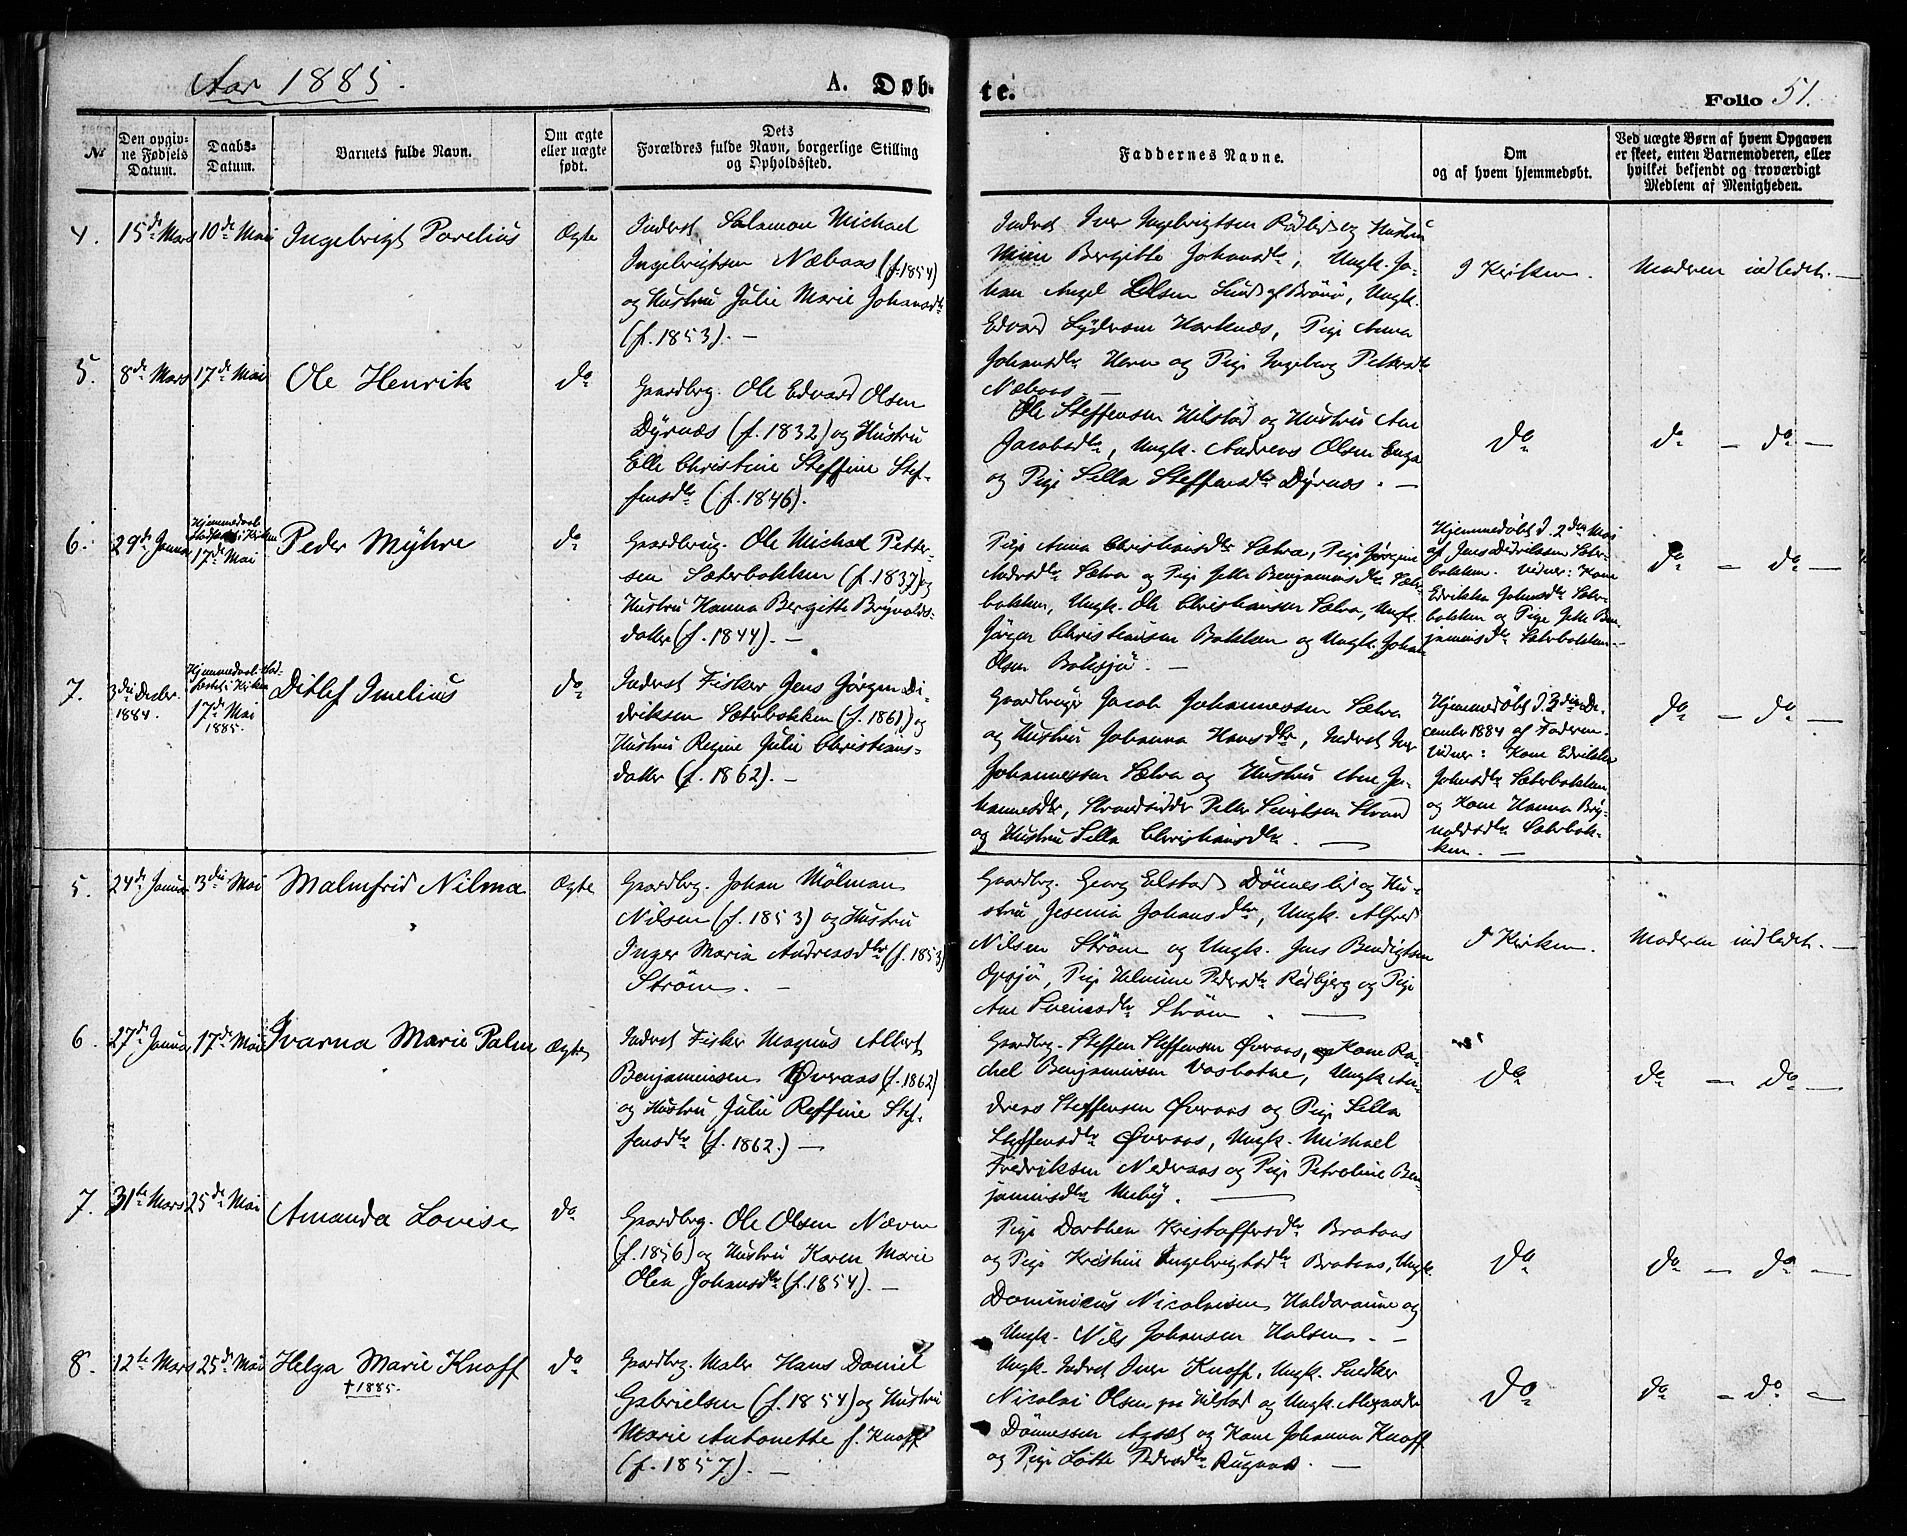 Aar 1885.
A. Døb-
te.
Folio 51.
No
Den opgiv-
ne Fødsels
Datum.
Daabs-
Datum.
Barnets fulde Navn.
Om ægte
eller uægte
født.
Dets
Forældres fulde Navn, borgerlige Stilling
og Opholdssted.
Faddernes Navne.
Om
og af hvem hjemmedøbt.
Ved uægte Børn af hvem Opgaven
er skeet, enten Barnemoderen, eller
hvilket bekjendt og troværdigt
Medlem af Menigheden.
4. 15de Mars 10de Mai Ingebrigt Parelius Ægte
Inderst Salamon Michael
Ingebrigtsen Næbaas (f. 1854)
og Hustru Julie Marie Johansdtr
(f. 1853). —
Inderst Iver Ingebrigtsen Rødlid og Hustru
Bergitte Johansdtr, Ungk. Jo-
han Angel Olsen Lund af Brønø, Ungk.
Edvard Lydersen Horknæs, Pige Anna
Johansdtr Havn og Pige Ingeborg Pettersdtr
Næbaas —
I Kirken.
Moderen indledet. —
5. 8de Mars 17de Mai Ole Henrik do
Gaardbrg. Ole Edvard Olsen
Dyrnæs (f. 1832) og Hustru
Elle Christine Steffine Stef-
fensdtr (f. 1846).
Ole Steffensen Hilstad og Hustru Ane
Jacobsdtr, Ungk. Andreas Olsen Enga
og Pige Sella Steffensdtr Dyrnæs. —
do
do — do —
6. 29de Januar
Hjemmedaab
Stadfæstet i Kirken
17de Mai
Peder Myhre do
Gaardbrug. Ole Michael Petter-
sen Sæterbakken (f. 1837) og
Hustru Hanna Bergitte Brynolds-
datter (f. 1844). —
Pige Anna Christiansdtr Sælva, Pige Jørgine
Andrsdtr Sælva og Pige Jette Benjaminsdtr Sæter-
bakken, Ungk. Ole Christiansen Sælva, Ungk.
Jørgen Christiansen Bakken og Ungk. Johan
Olsen Baksjø. —
Hjemmedøbt d. 2den Mai
af Jens Didriksen Sæter-
bakken. Vidner: Kone
Edrikka Johnsdtr Sæter-
bakken og Pige Jette Ben-
jaminsdtr Sæterbakken.
do — do —
7. 3die Decbr.
1884.
Hjemmedaab stad-
fæstet i Kirken
17de Mai
1885.
Ditlef Imelius do
Inderst Fisker Jens Jørgen Di-
driksen Sæterbakken (f. 1861) og
Hustru Regine Julie Christians-
datter (f. 1862). —
Gaardbruger Jacob Johannessen Sælva
og Hustru Johanna Hansdtr, Inderst Iver
Johannessen Sælva og Hustru Ane Jo-
hannesdtr, Strandsidder Peter Strand
og Hustru Sella Christiansdtr. —
Hjemmedøbt d. 3die De-
cember 1884 af Faderen.
Vidner: Kone Edrikka
Johnsdtr Sæterbakken
og Kone Hanna Bry-
noldsdtr Sæterbak-
ken. —
do — do —
5. 24de Januar 3die Mai Malmfrid Nilma Ægte
Gaardbrg. Johan Mølman
Nilsen (f. 1853) og Hustru
Inger Maria Andreasdtr (f. 1853)
Strøm. —
Gaardbrg. Georg Elstad Dønneslid og Hu-
stru Jesenia Johansdtr, Ungk. Alfred
Nilsen Strøm og Ungk. Jens Bendigtsen
Opsjø, Pige Helmine Pedersdtr Rødbjerg og Pige
Ane Sveinsdtr Strøm. —
I Kirken.
Moderen indledet. —
6. 27de Januar 17de Mai Ivarna Marie Palm Ægte
Inderst Fisker Magnus Albert
Benjaminsen Øvraas (f. 1862)
og Hustru Julie Reffine Stef-
fensdtr (f. 1862.) —
Gaardbrg. Steffen Steffensen Øvraas, Kone Ra-
chel Benjaminsen Vasbotne, Ungk. An-
dreas Steffensen Øvraas og Pige Sella
Steffensdtr Øvraas, Ungk. Michael
Fredriksen Nedraas og Pige Petroline Ben-
jaminsdtr —
do
do — do —
7. 31te Mars 25de Mai Amanda Lovise do
Gaardbrg. Ole Olsen Næven
(f. 1856) og Hustru Karen Marie
Olea Johansdtr (f. 1854). —
Pige Dorthea Kristoffersdtr Brataas
og Pige Kristine Ingebrigtsdtr Brataas, Ungk.
Dominicus Nicolaisen Haldoraune og
Ungk. Nils Johansen Halsen. —
do
do — do —
8. 12te Mars 25de Mai Helga Marie Knoff do
† 1885.
Gaardbrg. Maler Hans Daniel
Gabrielsen (f. 1854) og Hustru
Marie Antonette f. Knoff
(f. 1857). —
Ungk. Inderst Iver Knoff, Ungk. Snedker
Nicolai Olsen paa Hilstad og Ungk. Alexander
Dønnessen Aqsæt og Kone Johanna Knoff
og Pige Lotte Pedersdtr —
do
do — do —